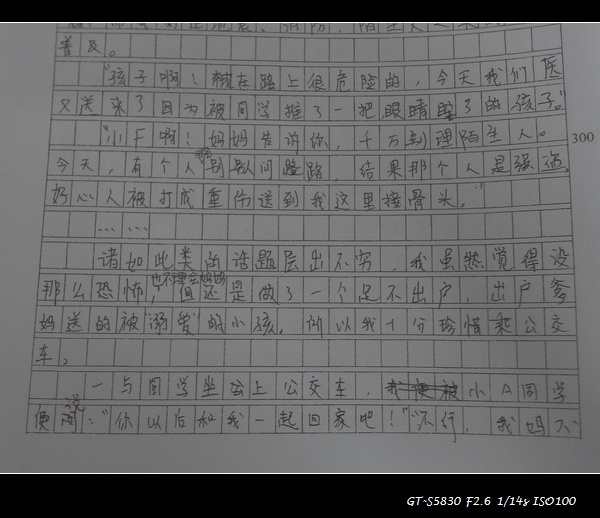 普及。
"孩子啊！就在路上很危险的，今天我们医
又送来了因为被同学推了一把眼睛毁了的孩子。"
"小F啊！妈妈告诉你，千万别理陌生人。
300
今天，有个人到别人问路，结果那个人是强盗，
好心人被打成重伤送到我这里接骨头。"
……
诸如此类的话题层出不穷，我虽然觉得没
那么恐怖，也不理会妈妈但还是做了一个足不出户，出户爹
妈送的被"溺爱"的小孩，所以我十分珍惜乘公交
车。
一与同学坐上公交车，小A同学
便说："你以后和我一起回家吧！""不行，我妈不
GT-S5830 F2.6 1/14s ISO100